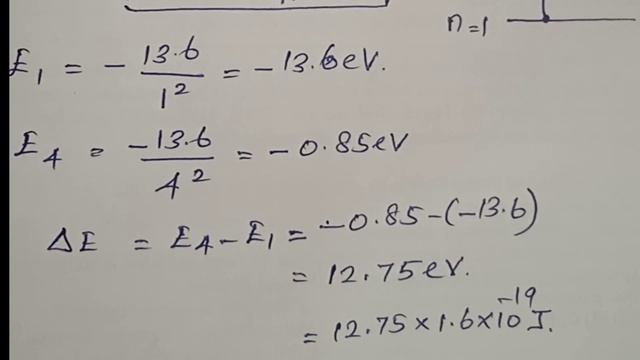 n=1
E₁ = - 13.6 / 1² = -13.6eV.
E₄ = -13.6 / 4² = -0.85eV
ΔE = E₄-E₁ = -0.85-(-13.6)
= 12.75eV.
= 12.75×1.6×10⁻¹⁹ J.